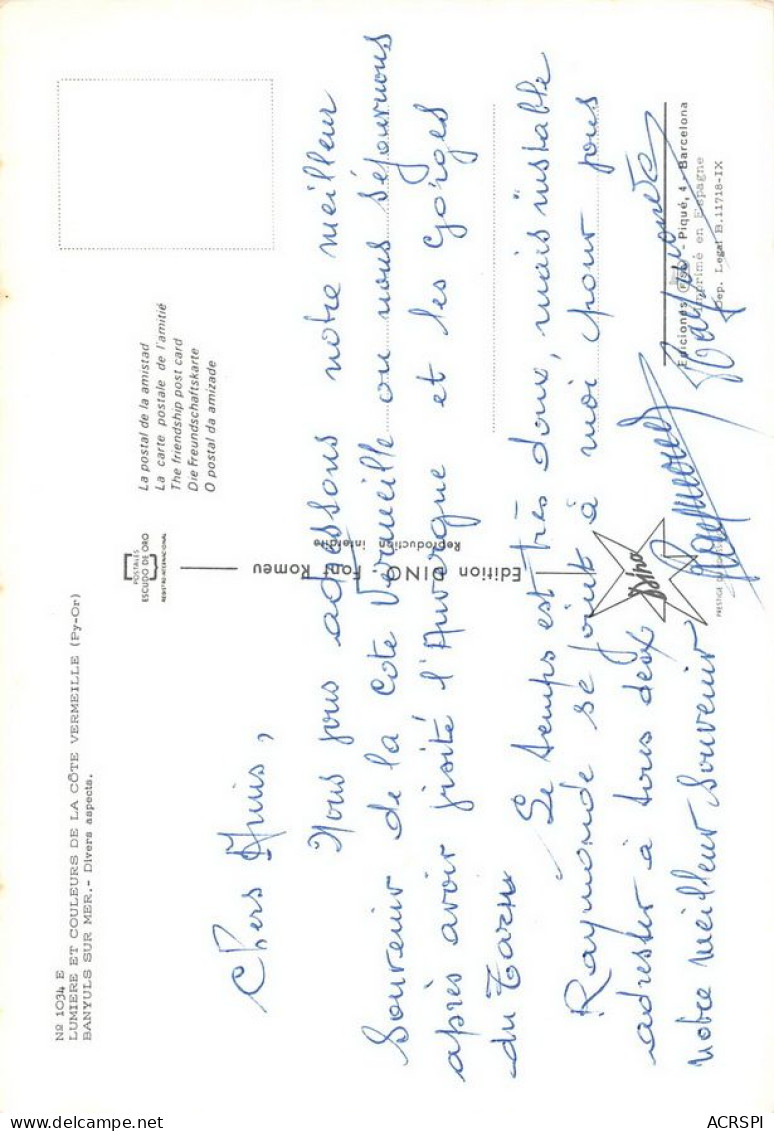 Nº 1034 E
LUMIERE ET COULEURS DE LA CÔTE VERMEILLE (Py-Or)
BANYULS SUR MER.- Divers aspects.
POSTALES
ESCUDO DE ORO
REGISTRO INTERNACIONAL
La postal de la amistad
La carte postale de l'amitié
The friendship post card
Die Freundschaftskarte
O postal da amizade
Chers Amis,
Nous vous adressons notre meilleur
Souvenir de la Cote Vermeille ou nous séjournons
après avoir visité l'Auvergne et les Gorges
du Tarn
Le temps est très doux, mais instable
Raymonde se joint à moi pour vous
adresser à tous deux
notre meilleur Souvenir
Raymonde
Edition DINO Font Romeu
Reproduction interdite
Dino
Ediciones FISA - Piqué, 4 - Barcelona
Imprimé en Espagne
Dep. Legal B. 11718-IX
ACRSPI